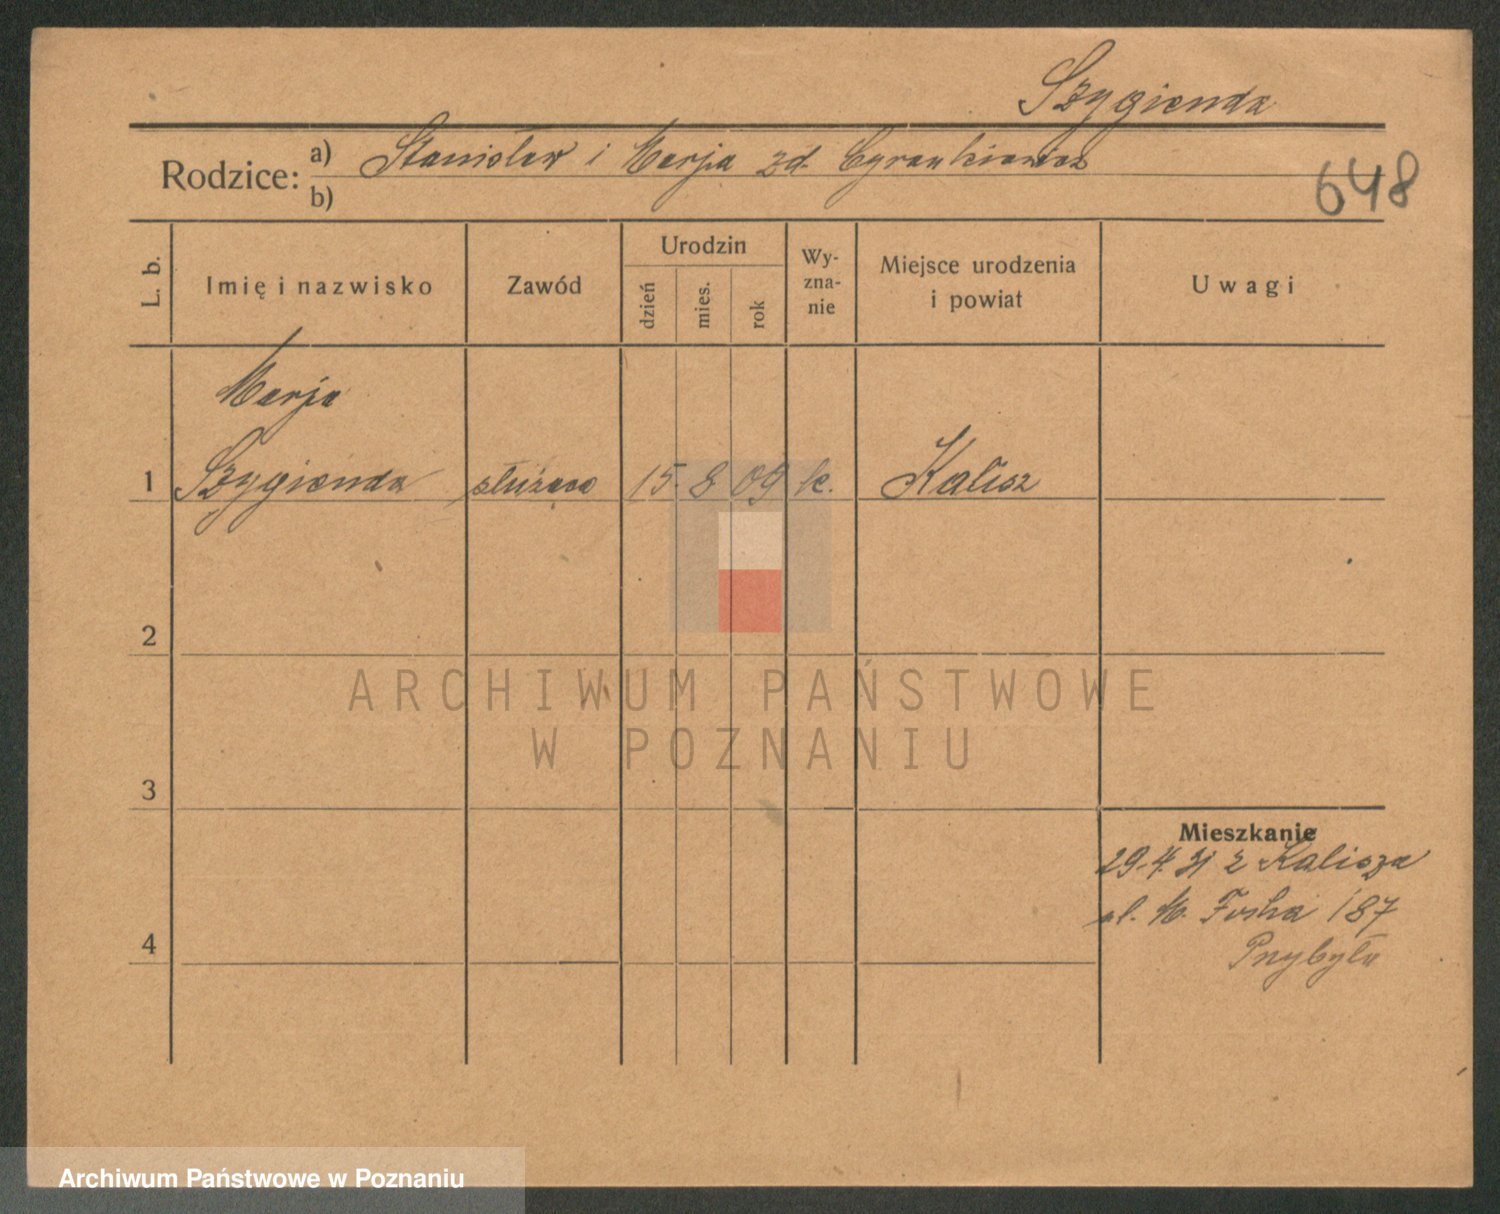 Szygienda
Rodzice:
a) Stanisław i Marja zd. Cyrankiewicz
b)
648
L. b.
Imię i nazwisko
Zawód
Urodzin
dzień
mies.
rok
Wy-
zna-
nie
Miejsce urodzenia
i powiat
Uwagi
Marja
1 Szygienda służąca 15. 8 09 k. Kalisz
2
ARCHIWUM PAŃSTWOWE
W POZNANIU
3
Mieszkanie
29.4.31 z Kalisza
ul. M. Focha 187
4
Przybyła
Archiwum Państwowe w Poznaniu